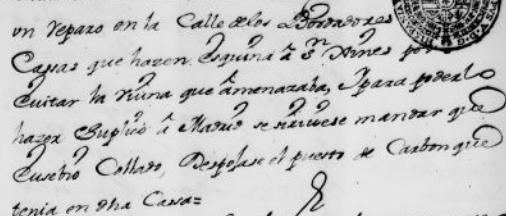 un reparo en la Calle delos Bordadores
Cassas que hazen Esquina â Sn Xines por
Euitar la rúina que âmenazaba, Ypara poderlo
hazer Suplico â Madrid se siruiese mandar que
Eusebio Collado, Despojase el puesto de Carbon que
tenia en dha Cassa=